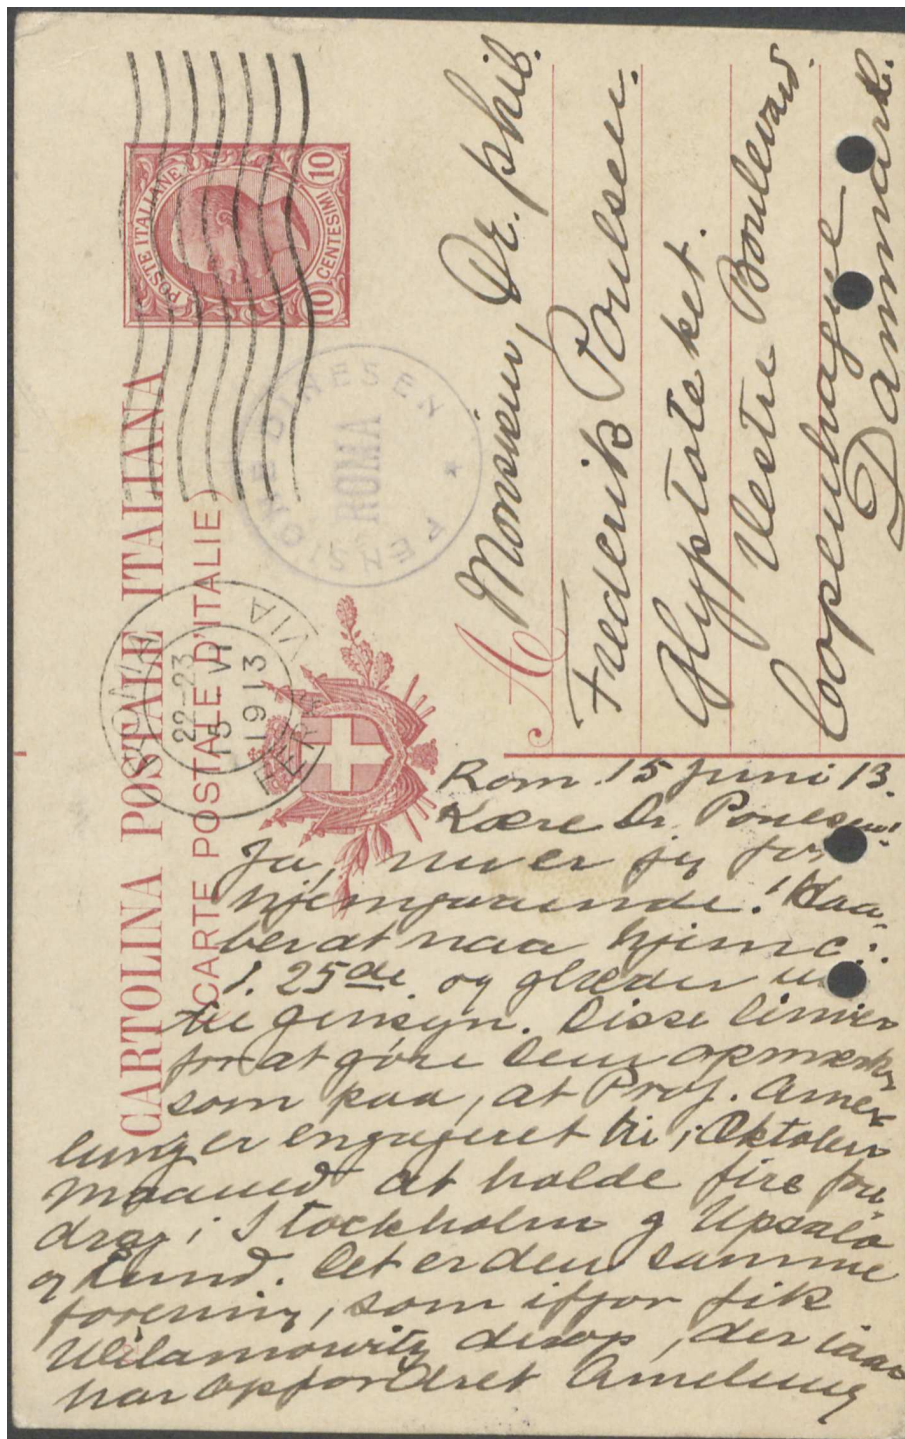 CARTOLINA POSTALE ITALIANA
(CARTE POSTALE D'ITALIE)
POSTE ITALIANE
10 CENTESIMI 10
PENSIONE DINESEN
ROMA
ROMA
22-23
15 VI
1913
FERROVIA
A Monsieur, Dr. phil.
Frederik Poulsen.
Glyptoteket.
Vestre Boulevard.
Copenhague
Danmark.
Rom 15 Juni 13.
Kære Dr. Poulsen!
Ja, nu er jeg for
hjemgaaende! Haa-
ber at naa hjem c:
d. 25de og glæder
til gensyn. Disse linier
for at gøre Dem opmærk-
som paa, at Prof. Ame-
lung er engageret til i Oktober
Maaned at holde fire fore-
drag i Stockholm og Upsala
og Lund. Det er den samme
forening, som ifjor fik
Wilamowitz derop, der iaar
har opfordret Amelung